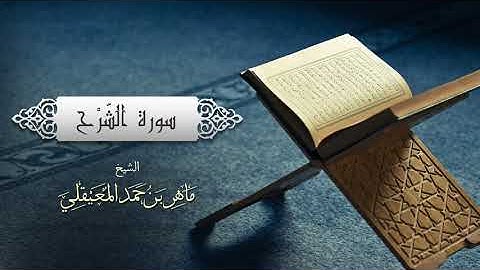 سورة الشَّرْح
الشيخ
مَاهِر بْن حَمَد المُعَيْقِلِيّ